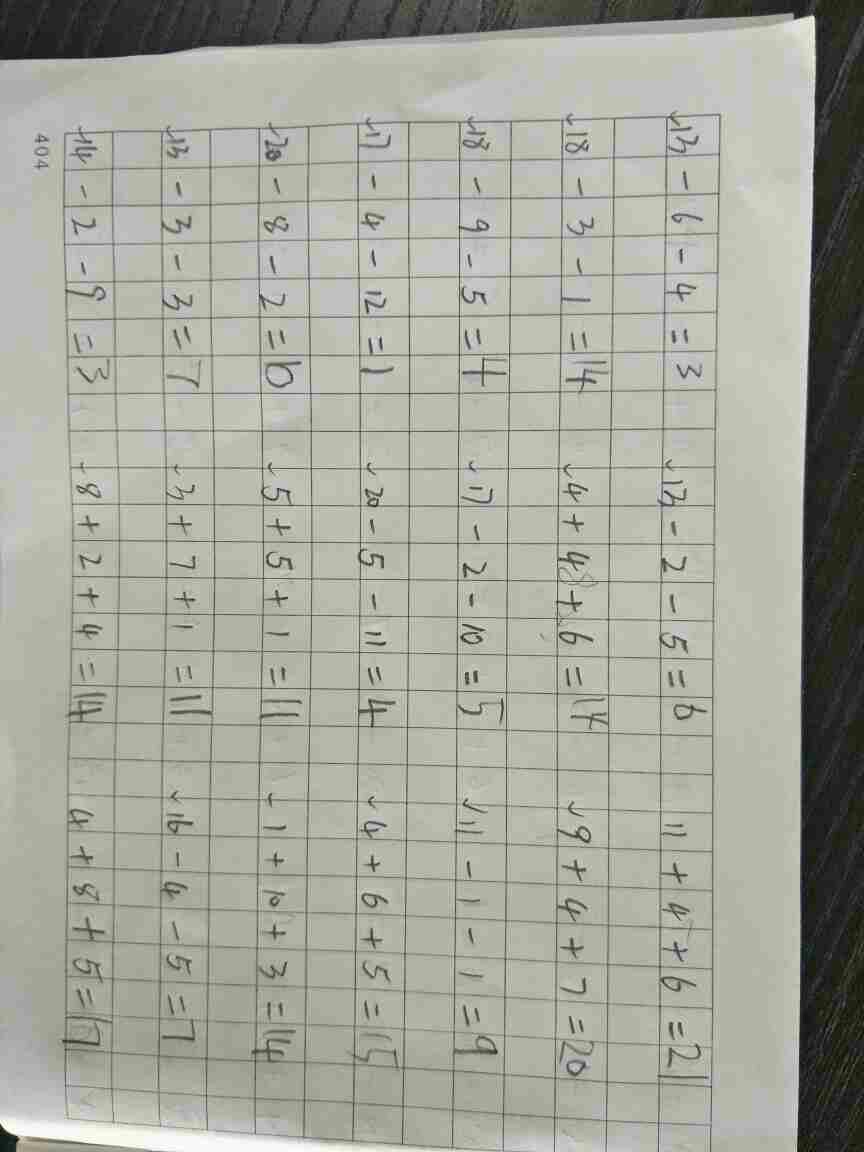 ✓13-6-4=3 ✓13-2-5=6 11+4+6=21
✓18-3-1=14 ✓4+4+6=14 ✓9+4+7=20
✓18-9-5=4 ✓17-2-10=5 ✓11-1-1=9
✓17-4-12=1 ✓20-5-11=4 ✓4+6+5=15
✓20-8-2=10 ✓5+5+1=11 ✓1+10+3=14
✓13-3-3=7 ✓3+7+1=11 ✓16-4-5=7
✓14-2-9=3 ✓8+2+4=14 4+8+5=17
404